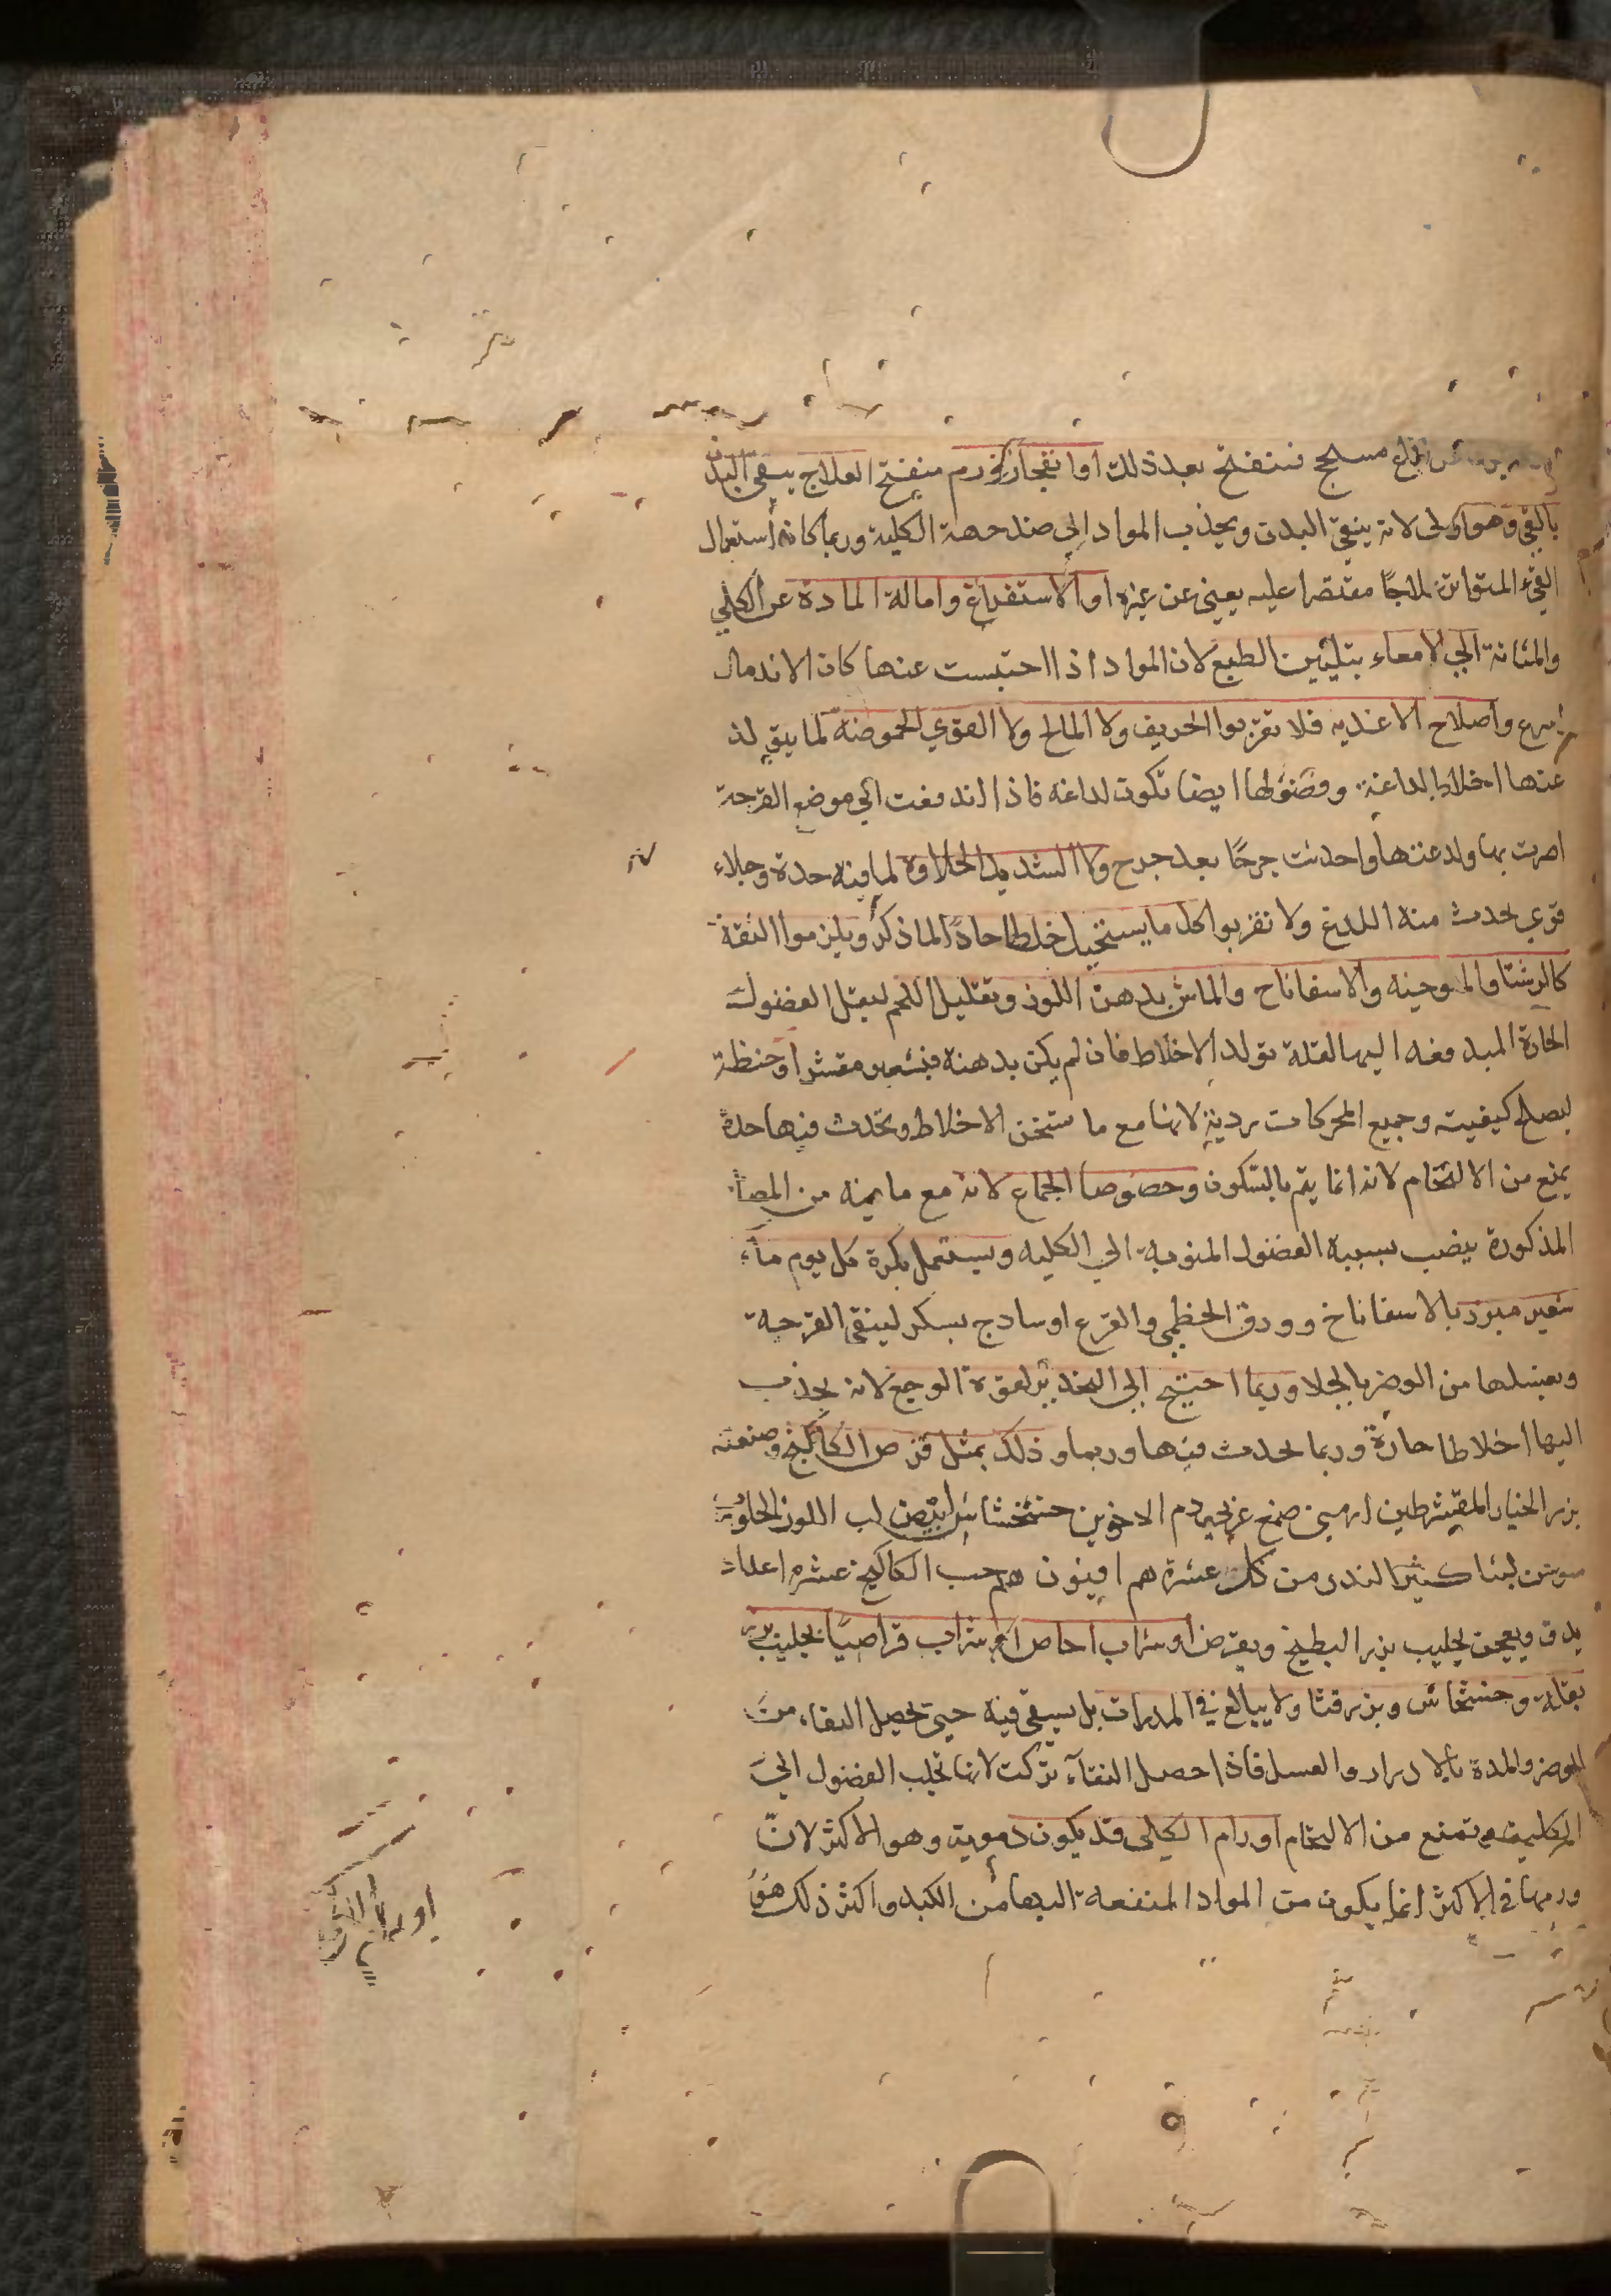 مسحج فتنفتح بعد ذلك او انفجار ورم منفتح العلاج ينقى البدن
بالقي وهو اولى لانه ينقي البدن ويجذب المواد الى ضد جهة الكلية وربما كانه استعمال
القيء المتواتر علاجًا مقتصرا عليه يغني عن غيره او الاستفراغ وامالة المادة عن الكلي
والمثانة الي الامعاء بتليين الطبع لان المواد اذا احتبست عنها كان الاندمال
اسرع واصلاح الاغذيه فلا تقربوا الحريف ولا المالح ولا القوي الحموضه لما يتولد
عنها اخلاط لداغة وفضولها ايضا تكون لداغه فاذا اندفعت الي موضع القرحة
اضرت بها ولدغتها واحدثت جرحًا بعد جرح ولا الشديد الحلاوة لما فيه حدة وجلاء
قوي يحدث منه اللدغ ولا تقربوا كل ما يستحيل خلطا حادًا لما ذكر ويلزموا التفة
كالرشتا والملوحيه والاسفاناح والماش بدهن اللوز وتقليل اللحم ليقل الفضول
الحارة المندفعه اليها لقلة تولد الاخلاط فان لم يكن بد همنه فبشعير مقشر او حنطة
ليصلح كيفيته وجميع الحركات ردية لانها مع ما تسخن الاخلاط وتحدث فيها حدة
يمنع من الالتحام لانه انما يتم بالسكون وخصوصا الجماع لانه مع ما فيه من المضار
المذكورة ينصب بسببه الفضول المنويه الي الكليه ويستعمل بكرة كل يوم مآء
شعير مبرد بالاسفاناخ وورق الخطمي والقرع او سادج بسكر لينقي القرحة
ويغسلها من الوضر بالجلا وربما احتيج الي التخدير لقوة الوجع لانه يجذب
اليها اخلاطا حارة وربما يحدث فيها ورما وذلك بمثل قرص الكاكنج وصنعته
بزر الخيار المقشر طين ارمني صمغ عربي دم الاخوين خشخاش ابيض لب اللوز الحلو رب
سوس لبنا كثيرا لندر من كل عشرة هم افيون هم حب الكاكنج عشره اعداد
يدق ويعجن بحليب بزر البطيخ ويقرص او شراب اجاص او شراب قراصيًا بحليب بزر
بقلة وخشخاش وبزر قثا ولا يبالغ في المدرات بل يسقي فيه حتي يحصل النقاء من
الوضر والمدة بالادرار والغسل فاذا حصل النقآء تركت لانها تجلب الفضول الي
الكلية وتمنع من الالتحام اورام الكلى قد يكون دموية وهو الاكثر لان
ورمها في الاكثر انما يكون من المواد المندفعة اليها من الكبد واكثر ذلك هو
اورام